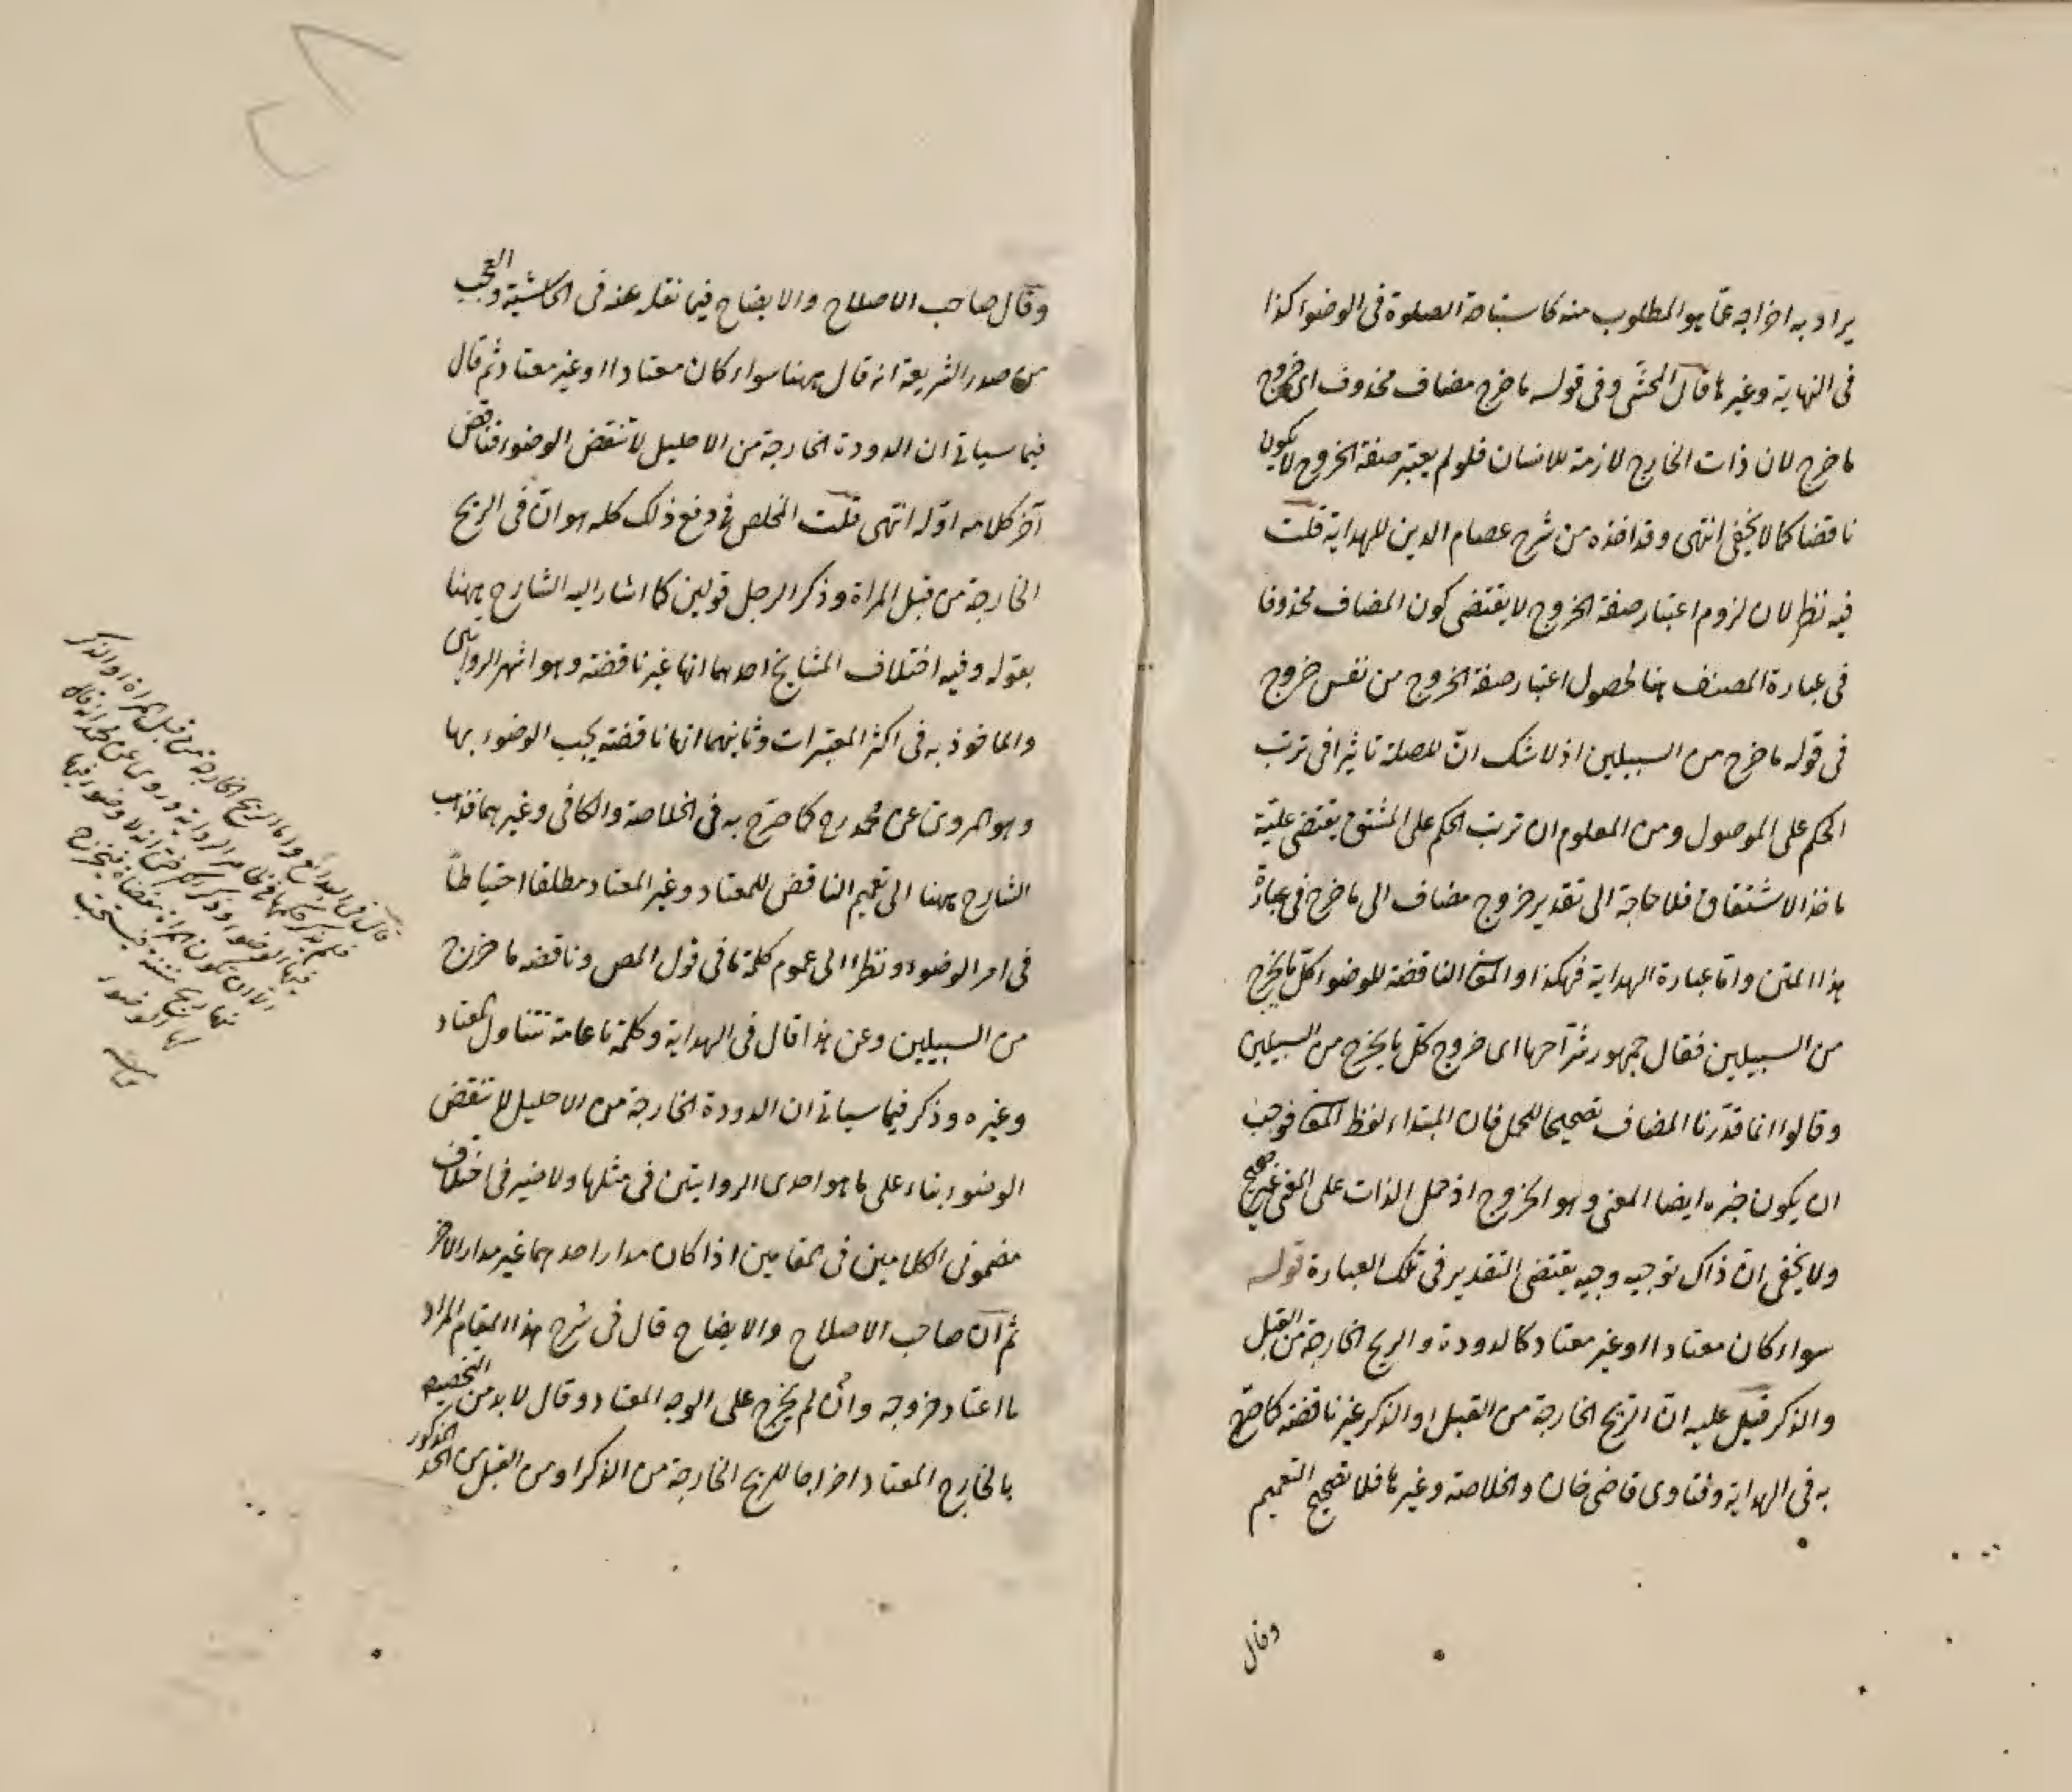 يراد به اخراجه عما هو المطلوب منه كاستباحة الصلوة فى الوضوء كذا
فى النهاية وغيرها قال المحشى وفى قوله ما خرج مضاف محذوف اى خروج
ما خرج لان ذات الخارج لازمة للانسان فلو لم يعتبر صفة الخروج لا يكون
ناقضا كما لا يخفى انتهى وقد اخذه من شرح عصام الدين للهداية قلت
فيه نظر لان لزوم اعتبار صفة الخروج لا يقتضى كون المضاف محذوفا
فى عبارة المصنف هنا لحصول اعتبار صفة الخروج من نفس خروج
فى قوله ما خرج من السبيلين اذ لا شك انّ للصلة تاثيرا فى ترتب
الحكم على الموصول ومن المعلوم ان ترتب الحكم على المشتق يقتضى علّية
ماخذ الاشتقاق فلا حاجة الى تقدير خروج مضاف الى ما خرج فى عبارة
هذا المتن وامّا عبارة الهداية فهكذا والمعانى الناقضة للوضوء كلّ ما يخرج
من السبيلين فقال جمهور شرّاحها اى خروج كلّ ما يخرج من السبيلين
وقالوا انما قدّرنا المضاف تصحيحا للحمل فان المبتداء لفظ المعانى فوجب
ان يكون خبره ايضا المعنى وهو الخروج اذ حمل الذات على المعنى غير صحيح
ولا يخفى انّ ذاك توجيه وجيه يقتضى التقدير فى تلك العبارة قوله
سواء كان معتادا او غير معتاد كالدودة والريح الخارجة من القبل
والذكر قيل عليه انّ الريح الخارجة من القبل او الذكر غير ناقضة كما صرّح
به فى الهداية وفتاوى قاضى خان والخلاصة وغيرها فلا تصحيح التعميم
وقال
وقال صاحب الاصلاح والايضاح فيما نقله عنه فى الحاشية والعجب
من صدر الشريعة انه قال ههنا سواء كان معتادا او غير معتاد ثم قال
فيما سياتى ان الدودة الخارجة من الاحليل لا تنقض الوضوء فناقض
آخر كلامه اوّله انتهى قلت المخلص فى دفع ذلك كله هو انّ فى الريح
الخارجة من قبل المراة وذكر الرجل قولين كما اشار اليه الشارح ههنا
بقوله وفيه اختلاف المشايخ احدهما انها غير ناقضة وهو اشهر الروايتين
والماخوذ به فى اكثر المعتبرات وثانيهما انها ناقضة يجب الوضوء بها
وهو المروىّ عن محمد رح كما صرّح به فى الخلاصة والكافى وغيرهما فذهب
الشارح ههنا الى تعميم الناقض للمعتاد وغير المعتاد مطلقا احتياطاً
فى امر الوضوء ونظرا الى عموم كلمة ما فى قول المص وناقضه ما خرج
من السبيلين وعن هذا قال فى الهداية وكلمة ما عامة تتناول المعتاد
وغيره وذكر فيما سياتى ان الدودة الخارجة من الاحليل لا تنقض
الوضوء بناء على ما هو احدى الروايتين فى مثلها ولا ضير فى اختلاف
مضمونى الكلامين فى المقامين اذا كان مدار احدهما غير مدار الاخر
ثم انّ صاحب الاصلاح والايضاح قال فى شرح هذا المقام المراد
ما اعتاد خروجه وان لم يخرج على الوجه المعتاد وقال لا بد من التخصيص
بالخارج المعتاد اخراجا للريح الخارجة من الذكر او من القبل المذكور
قال فى البدائع واما الريح الخارجة من قبل المراة او الذكر
فلم يذكر حكمها فى ظاهر الرواية وروى عن محمد انه قال
فيها الوضوء وذكر الكرخى انه لا وضوء فيها
الا ان تكون المراة مفضاة فيخرج
منها ريح منتنة فيستحب
لها الوضوء